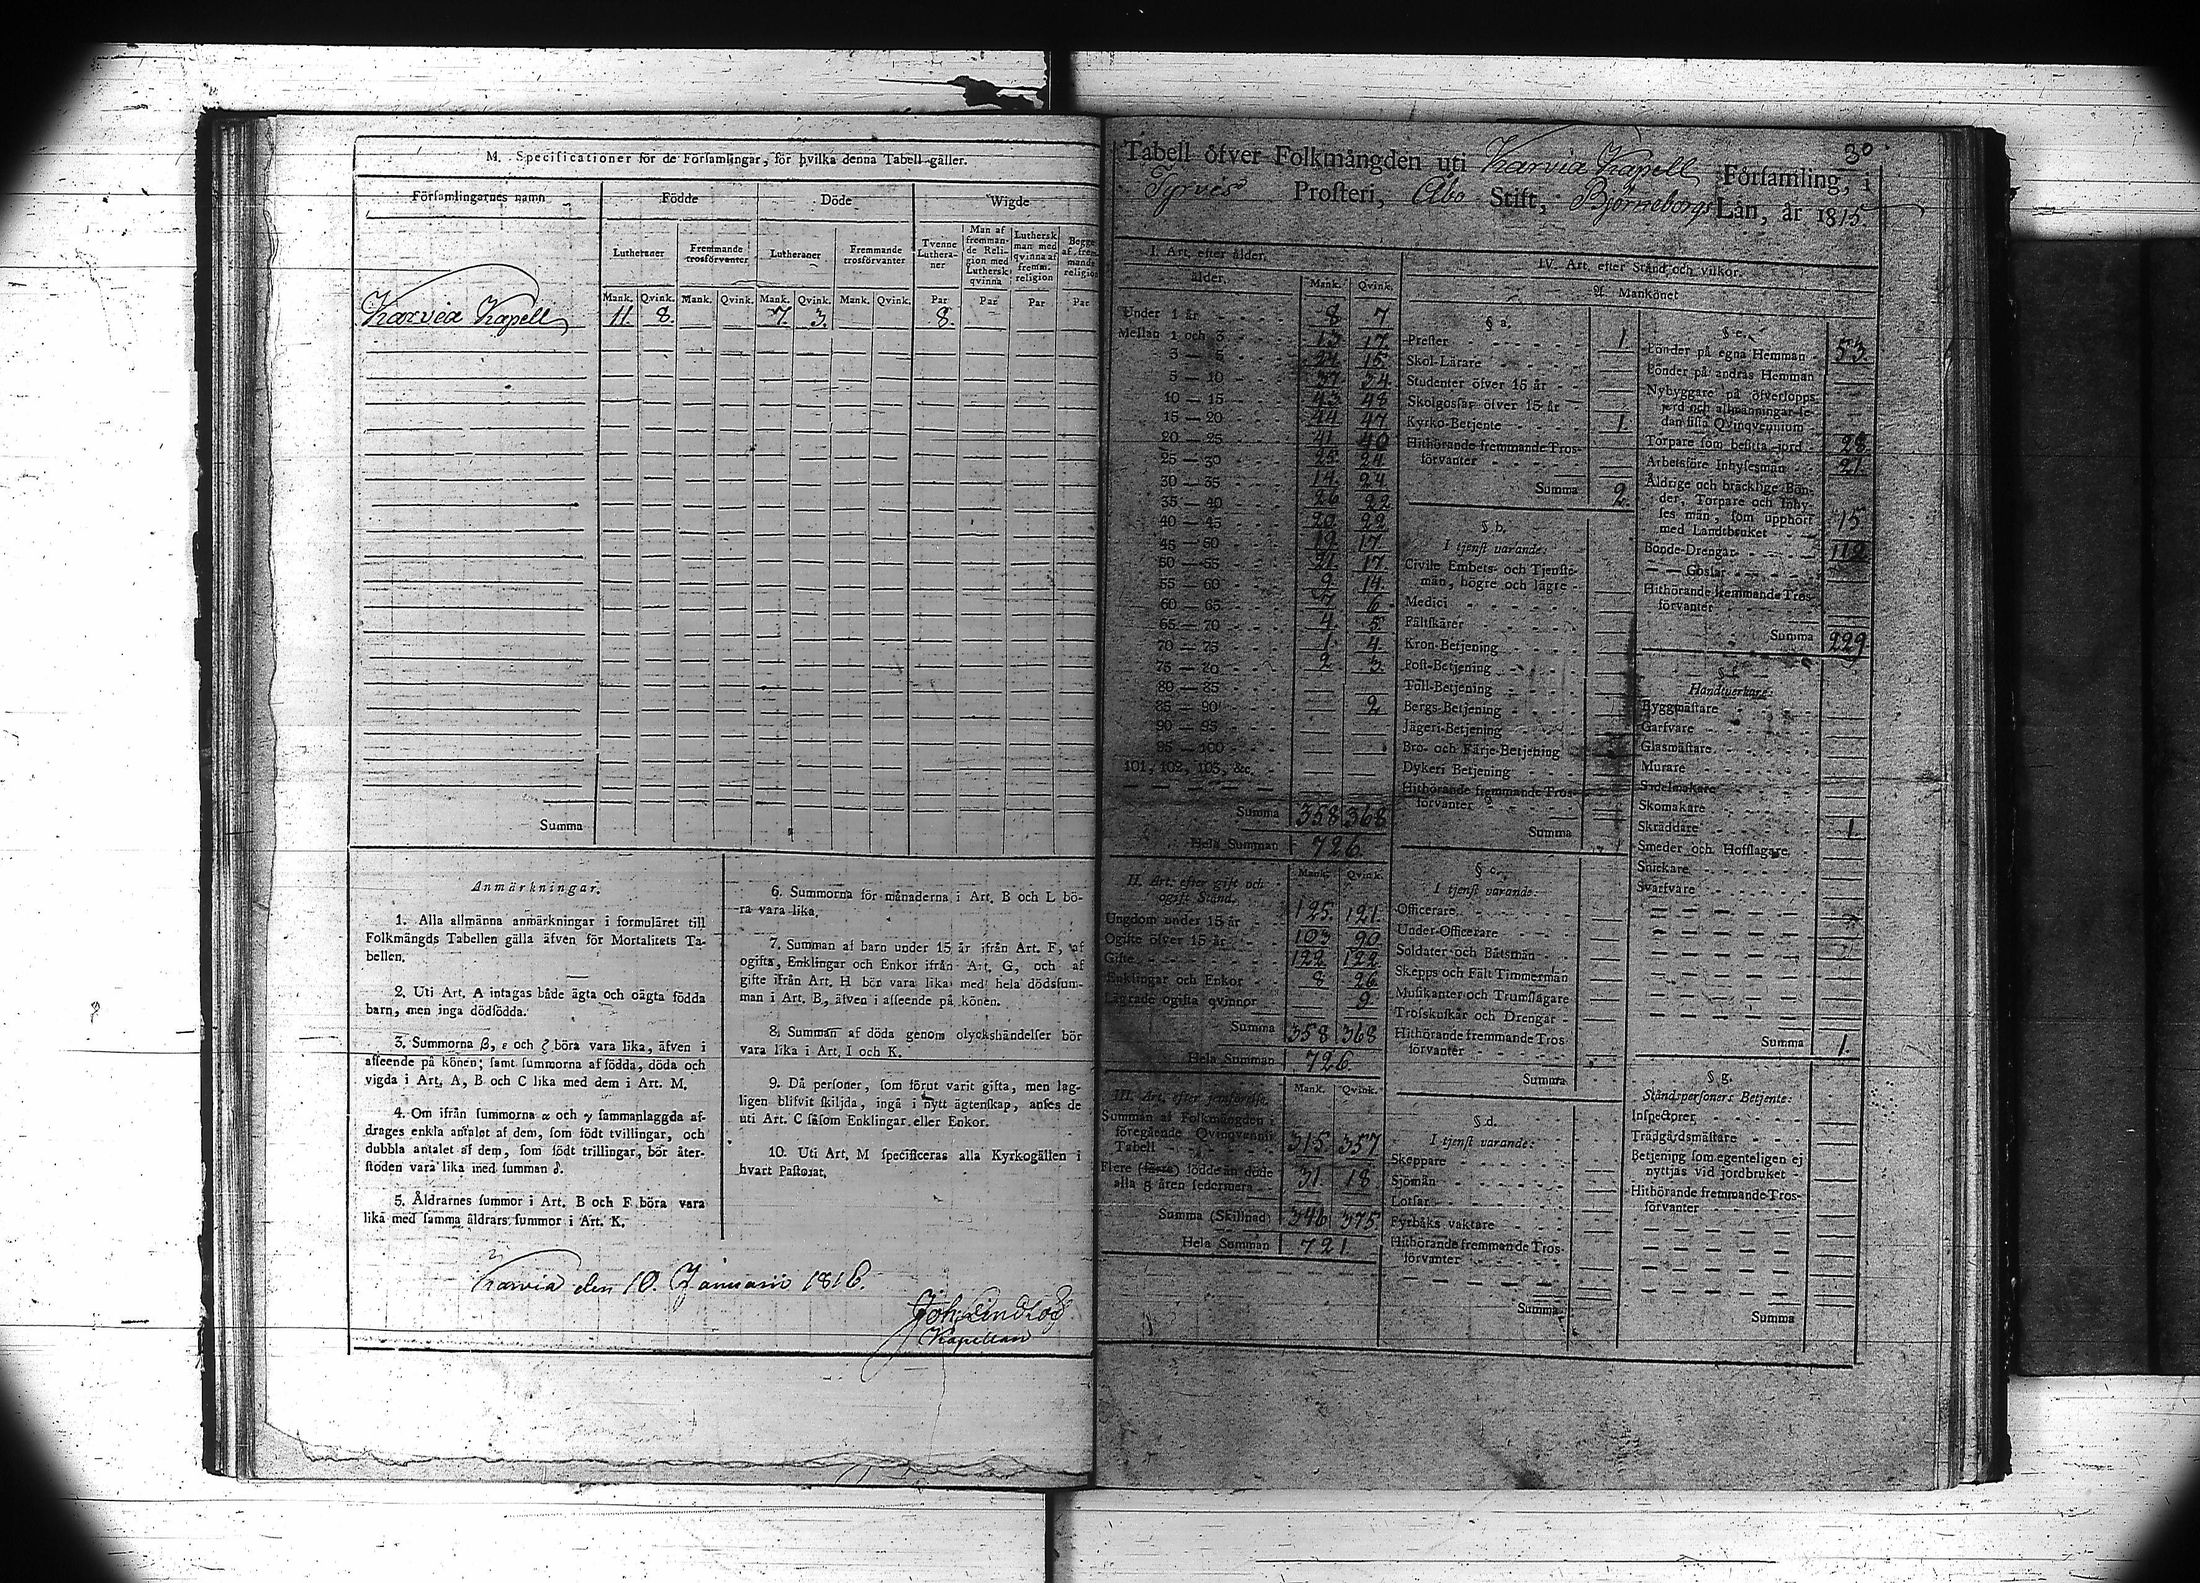 M. Specificationer för de Församlingar, för hvilka denna Tabell gäller.
Församlingarnes namn
Födde
Döde
Wigde
Lutheraner
Fremmande trosförvanter
Lutheraner
Fremmande trosförvanter
Tvenne Lutheraner
Man af fremmande Religion med Luthersk qvinna
Luthersk man med qvinna af fremm. religion
Begge af fremmande religion
Mank. Qvink. Mank. Qvink. Mank. Qvink. Mank. Qvink. Par Par Par Par
Karvia Kapell 11. 8. 7. 3. 8.
Summa
Anmärkningar.
1. Alla allmänna anmärkningar i formuläret till
Folkmängds Tabellen gälla äfven för Mortalitets Ta-
bellen.
2. Uti Art. A intagas både ägta och oägta födda
barn, men inga dödfödda.
3. Summorna β, ε och ζ böra vara lika, äfven i
afseende på könen; samt summorna af födda, döda och
vigda i Art. A, B och C lika med dem i Art. M.
4. Om ifrån summorna α och γ sammanlaggda af-
drages enkla antalet af dem, som födt tvillingar, och
dubbla antalet af dem, som födt trillingar, bör åter-
stoden vara lika med summan δ.
5. Åldrarnes summor i Art. B och F böra vara
lika med samma åldrars summor i Art. K.
6. Summorna för månaderna i Art. B och L bö-
ra vara lika.
7. Summan af barn under 15 år ifrån Art. F, af
ogifta, Enklingar och Enkor ifrån Art. G, och af
gifte ifrån Art. H bör vara lika med hela dödssum-
man i Art. B, äfven i afseende på könen.
8. Summan af döda genom olyckshändelser bör
vara lika i Art. I och K.
9. Då personer, som förut varit gifta, men lag-
ligen blifvit skiljda, ingå i nytt ägtenskap, anses de
uti Art. C såsom Enklingar eller Enkor.
10. Uti Art. M specificeras alla Kyrkogällen i
hvart Pastorat.
Karvia den 10. Januarii 1816.
Kapellan
30.
Tabell öfver Folkmängden uti Karvia Kapell Församling, i
Tyrvis Prosteri, Åbo Stift, Björneborgs Län, år 1815.
I. Art. efter ålder.
ålder. Mank. Qvink.
Under 1 år 8 7
Mellan 1 och 3 13 17
3 — 5 24 15
5 — 10 37 34
10 — 15 43 48
15 — 20 44 47
20 — 25 41 40
25 — 30 25 24
30 — 35 14. 24
35 — 40 26 22
40 — 45 20 22
45 — 50 19 17
50 — 55 21 17
55 — 60 9 14
60 — 65 7 6
65 — 70 4 5
70 — 75 1 4
75 — 80 2 3
80 — 85
85 — 90 2
90 — 95
95 — 100
101, 102, 103, &c.
Summa 358 368
Hela Summan 726
II. Art. efter gift och
ogift Stånd. Mank. Qvink.
Ungdom under 15 år 125. 121.
Ogifte öfver 15 år 103 90
Gifte 122 122
Enklingar och Enkor 8 26
Lägrade ogifta qvinnor 9
Summa 358 368
Hela Summan 726.
III. Art. efter jemförelse. Mank. Qvink.
Summan af Folkmängden i
föregående Qvinqvennii
Tabell 315 357
Flere (färre) födde än döde
alla 5 åren sedermera 31 18
Summa (Skillnad) 346 375
Hela Summan 721
IV. Art. efter Stånd och vilkor.
A. Mankönet
§ a.
Prester 1
Skol-Lärare
Studenter öfver 15 år
Skolgossar öfver 15 år
Kyrko-Betjente 1.
Hithörande fremmande Tros-
förvanter
Summa 2.
§ b.
I tjenst varande:
Civile Embets- och Tjenste-
män, högre och lägre
Medici
Fältskärer
Kron-Betjening
Post-Betjening
Toll-Betjening
Bergs-Betjening
Jägeri-Betjening
Bro- och Färje-Betjening
Dykeri Betjening
Hithörande fremmande Tros-
förvanter
Summa
§ c.
I tjenst varande:
Officerare
Under-Officerare
Soldater och Båtsmän
Skepps och Fält Timmermän
Musikanter och Trumslagare
Trosskuskar och Drengar
Hithörande fremmande Tros-
förvanter
Summa
§ d.
I tjenst varande:
Skeppare
Sjömän
Lotsar
Fyrbåks vaktare
Hithörande fremmande Tros-
förvanter
Summa
§ e.
Bönder på egna Hemman 53.
Bönder på andras Hemman
Nybyggare på öfverlopps-
jord och allmänningar se-
dan sista Qvinqvennium
Torpare som besitta jord 28.
Arbetsföre Inhysesmän 21.
Åldrige och bräcklige Bön-
der, Torpare och Inhy-
ses män, som upphört
med Landtbruket 15
Bonde-Drengar 112
— — Gossar
Hithörande fremmande Tros-
förvanter
Summa 229
§ f.
Handtverkare:
Byggmästare
Garfvare
Glasmästare
Murare
Sadelmakare
Skomakare
Skräddare 1.
Smeder och Hofslagare
Snickare
Svarfvare
Summa 1.
§ g.
Ståndspersoners Betjente:
Inspectorer
Trädgårdsmästare
Betjening som egenteligen ej
nyttjas vid jordbruket
Hithörande fremmande Tros-
förvanter
Summa